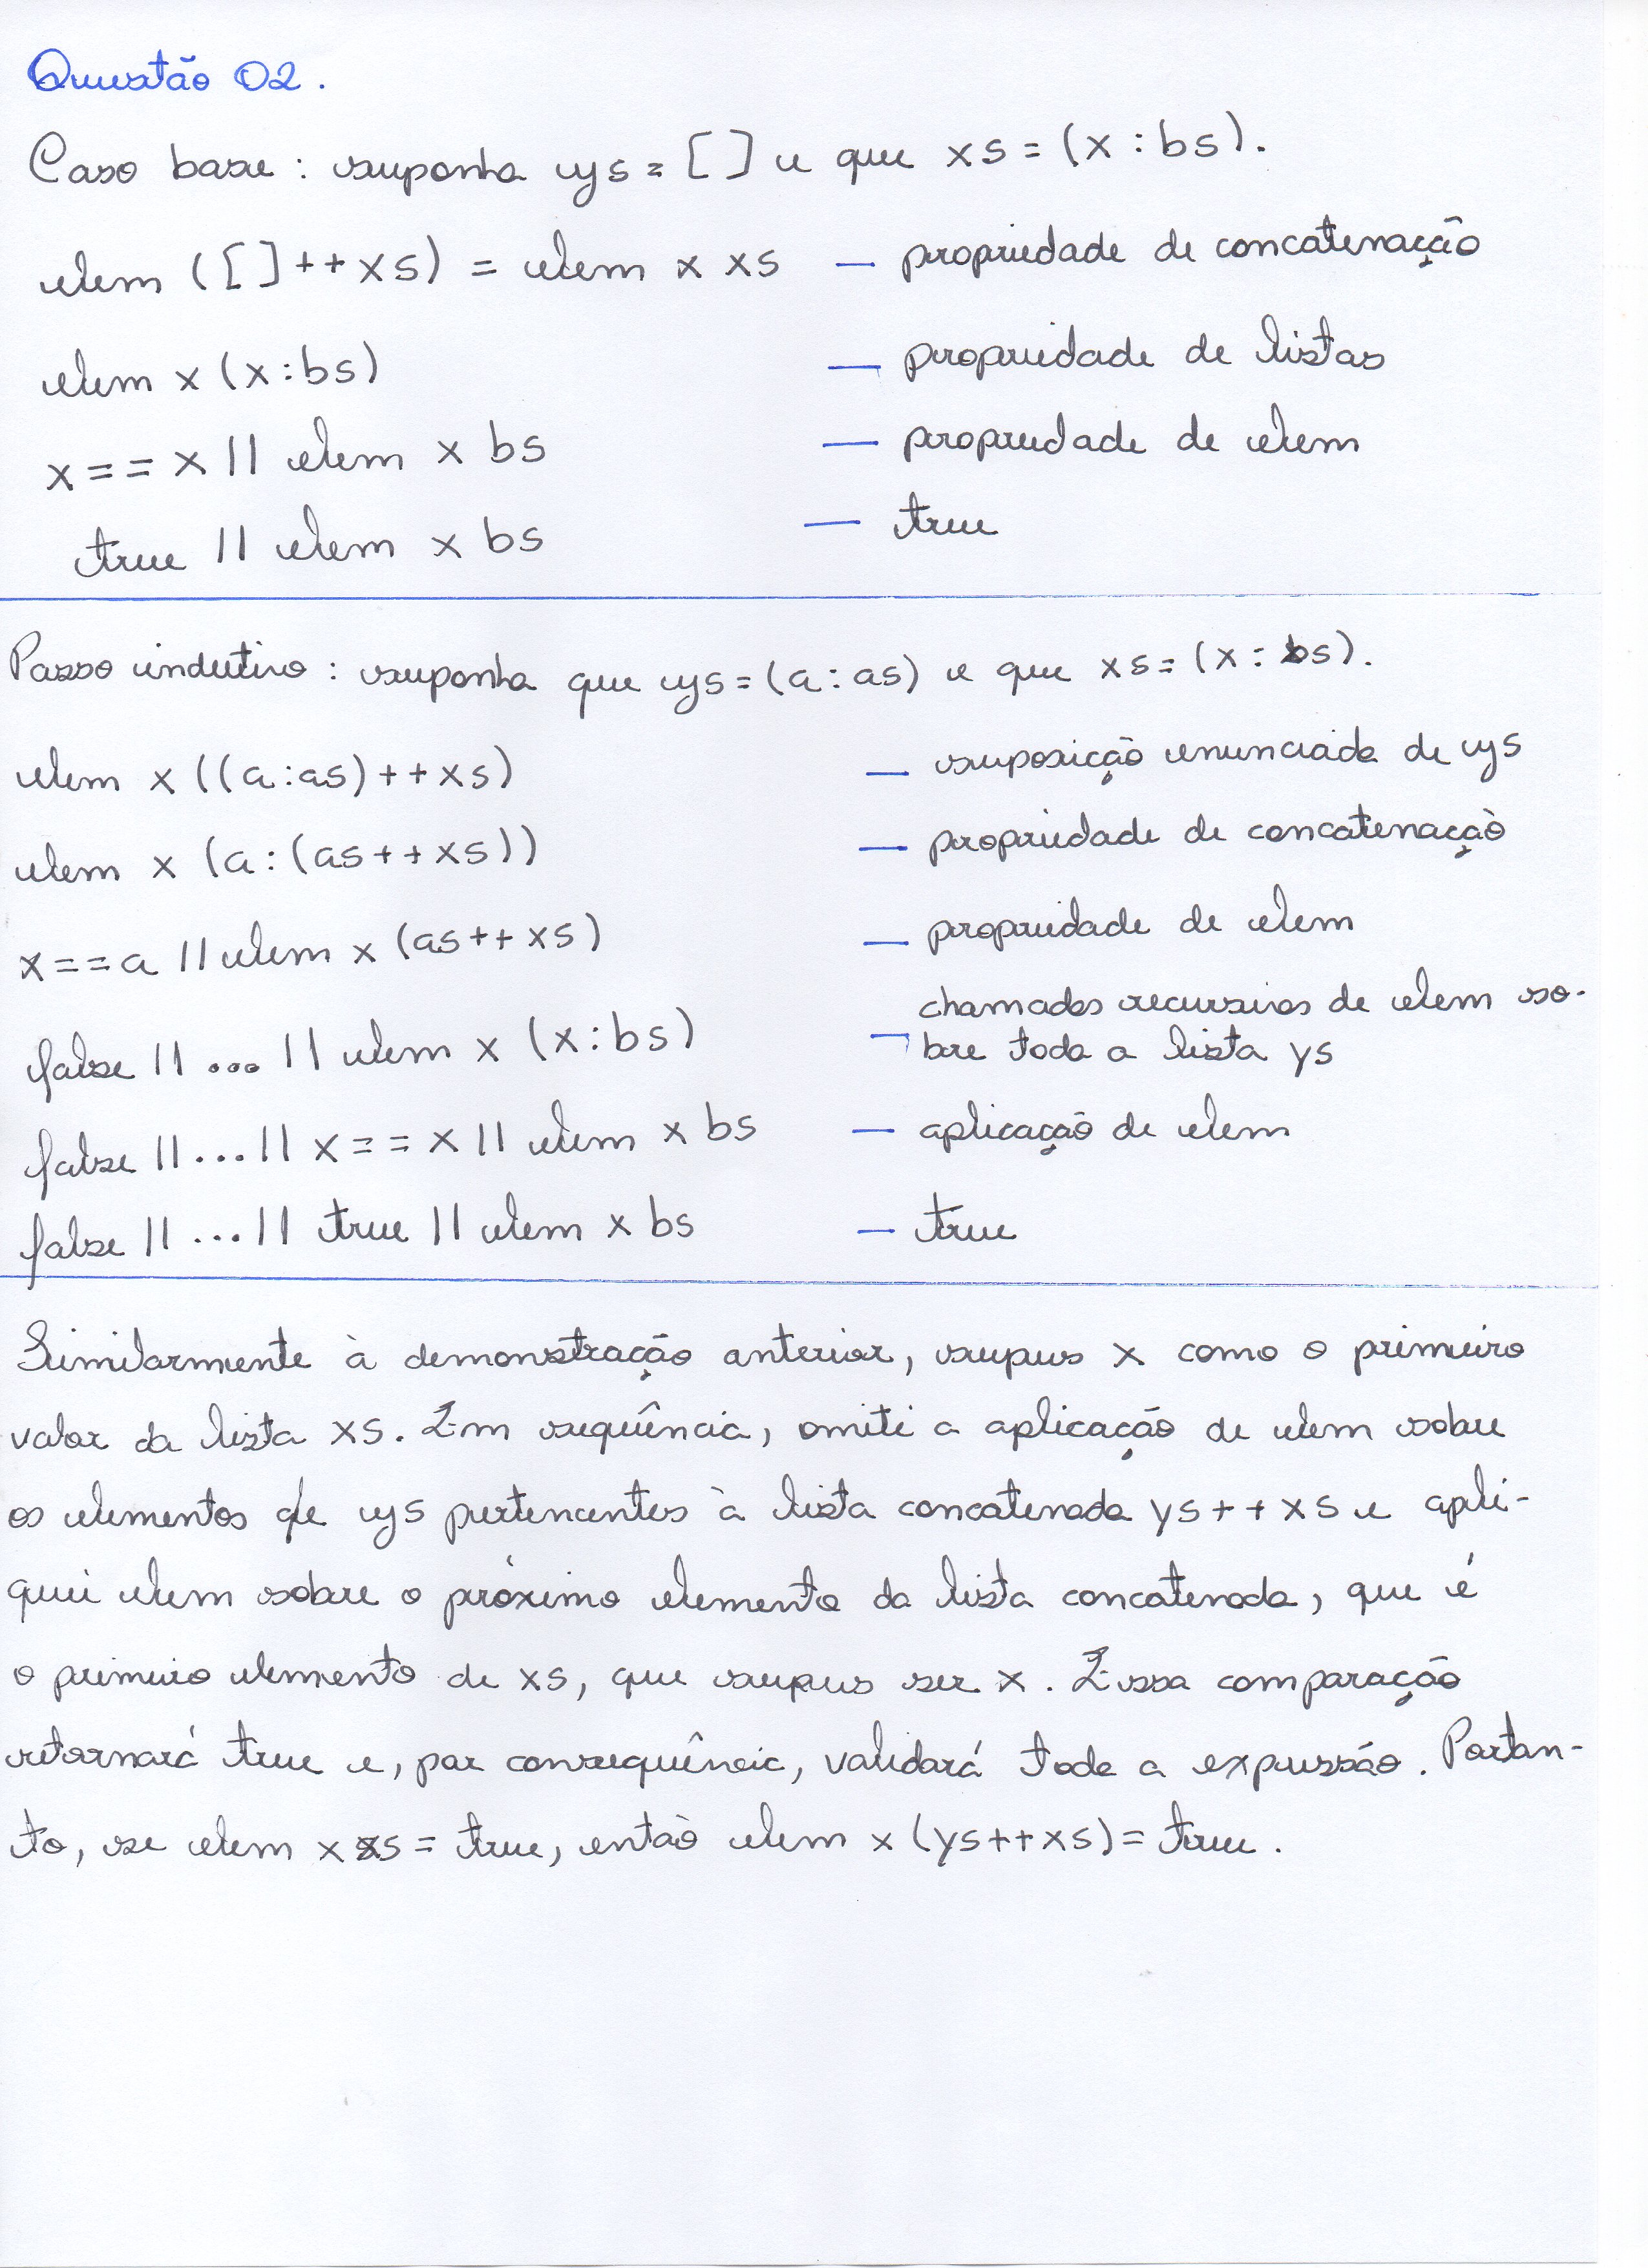 Questão 02.
Caso base: suponha ys = [] e que xs = (x:bs).
elem ([]++xs) = elem x xs — propriedade de concatenação
elem x (x:bs) — propriedade de listas
x==x || elem x bs — propriedade de elem
true || elem x bs — true
Passo indutivo: suponha que ys=(a:as) e que xs=(x:bs).
elem x ((a:as)++xs) — suposicção enunciada de ys
elem x (a:(as++xs)) — propriedade de concatenação
x==a || elem x (as++xs) — propriedade de elem
false || ... || elem x (x:bs) — chamadas recursivas de elem so-
bre toda a lista ys
false || ... || x==x || elem x bs — aplicação de elem
false || ... || true || elem x bs — true
Similarmente à demonstração anterior, supus x como o primeiro
valor da lista xs. Em sequência, omiti a aplicação de elem sobre
os elementos de ys pertencentes à lista concatenada ys++xs e apli-
quei elem sobre o próximo elemento da lista concatenada, que é
o primeiro elemento de xs, que supus ser x. Essa comparação
retornará true e, por consequência, validará toda a expressão. Portan-
to, se elem x xs = true, então elem x (ys++xs) = true.